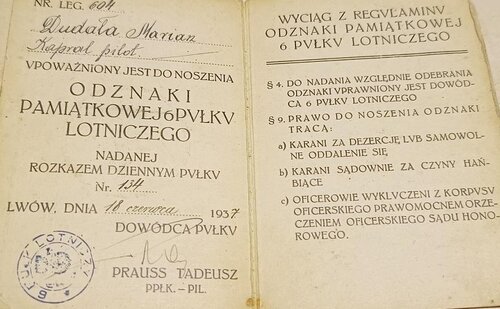 NR. LEG. 694
Dudała Marian
Kapral pilot
VPOWAŻNIONY JEST DO NOSZENIA
ODZNAKI
PAMIĄTKOWEJ 6 PVŁKV
LOTNICZEGO
NADANEJ
ROZKAZEM DZIENNYM PVŁKV
Nr. 134
LWÓW, DNIA 18 czerwca 1937
DOWÓDCA PVŁKV
PRAUSS TADEUSZ
PPŁK.-PIL.
6 PUŁK LOTNICZY
WYCIĄG Z REGVLAMINV
ODZNAKI PAMIĄTKOWEJ
6 PVŁKV LOTNICZEGO
§ 4. DO NADANIA WZGLĘDNIE ODEBRANIA
ODZNAKI VPRAWNIONY JEST DOWÓD-
CA 6 PVŁKV LOTNICZEGO
§ 9. PRAWO DO NOSZENIA ODZNAKI
TRACĄ:
a) KARANI ZA DEZERCJĘ LVB SAMOWOL-
NE ODDALENIE SIĘ
b) KARANI SĄDOWNIE ZA CZYNY HAŃ-
BIĄCE
c) OFICEROWIE WYKLVCZENI Z KORPVSV
OFICERSKIEGO PRAWOMOCNEM ORZE-
CZENIEM OFICERSKIEGO SĄDV HONO-
ROWEGO.